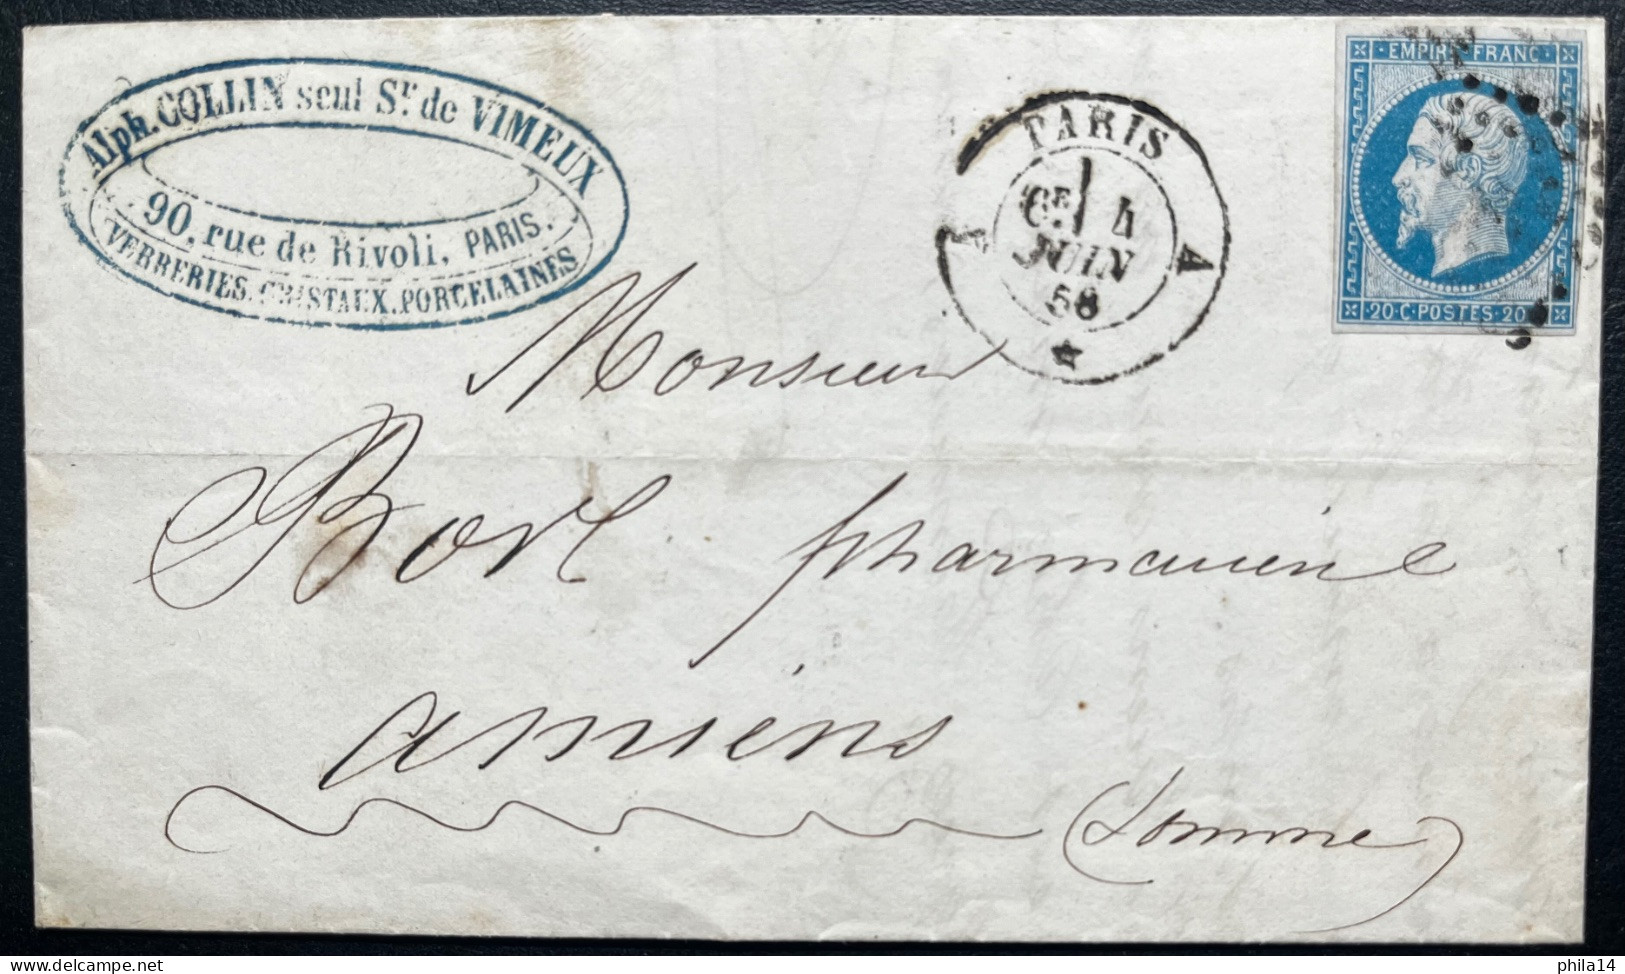 Alph. COLLIN seul Sr. de VIMEUX
90, rue de Rivoli, PARIS.
VERRERIES, CRISTAUX, PORCELAINES
PARIS
6E 4
JUIN
58
A A
EMPIRE FRANC
20 · C · POSTES · 20
Monsieur
Bor pharmacien
amiens
(Somme)
delcampe.net
phila14